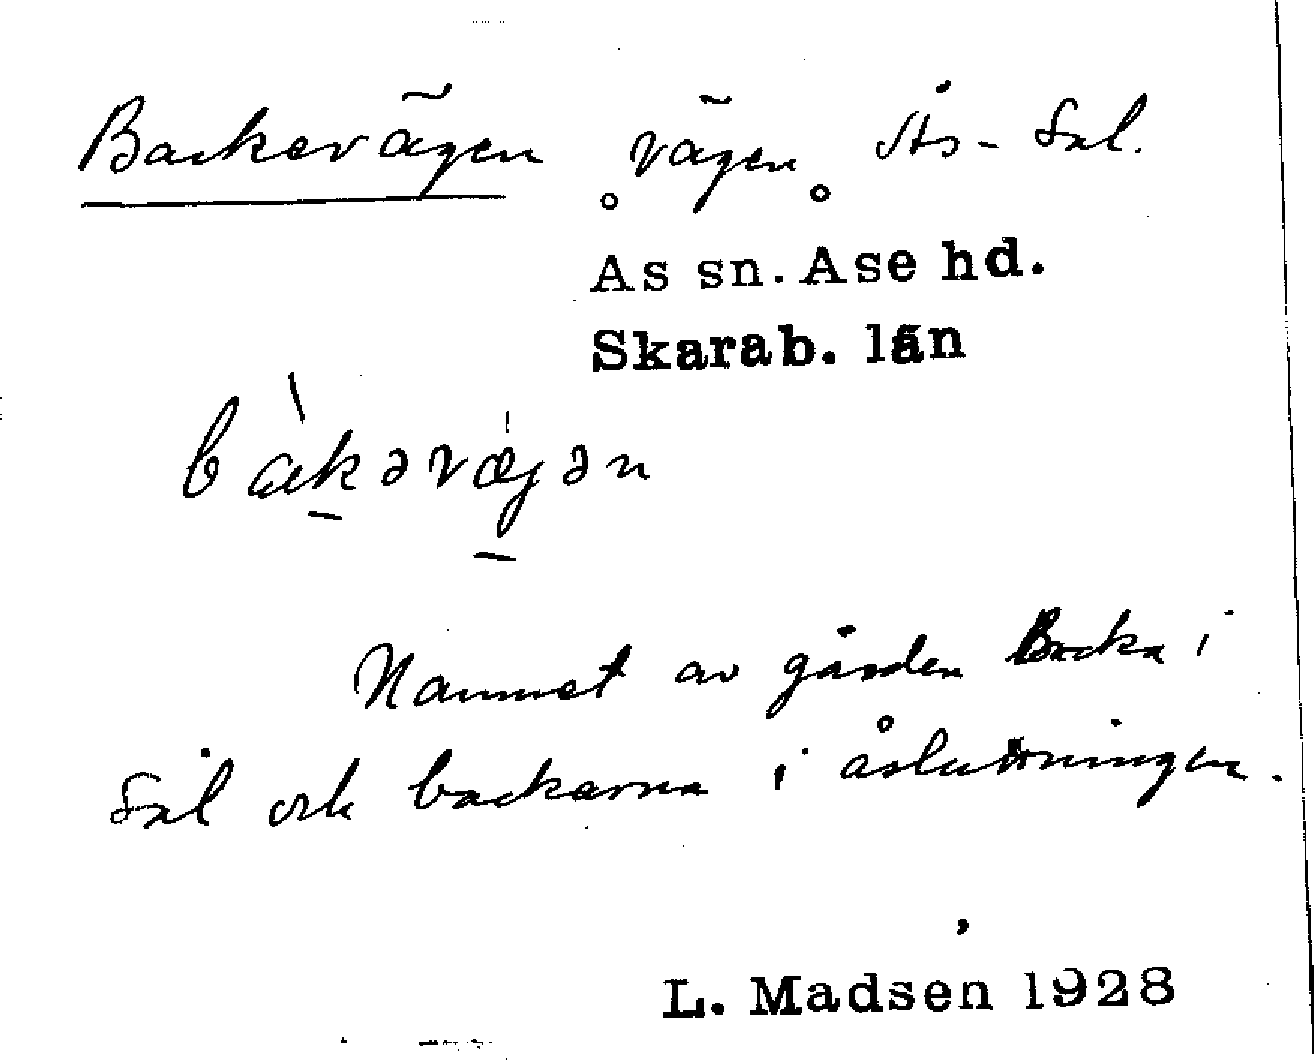 Backevägen vägen Ås - Sal.
Ås sn. Åse hd.
Skarab. län
bàkəvægən
Namnet av gården Backa i
Sal och backarna i åsluttningen.
L. Madsen 1928